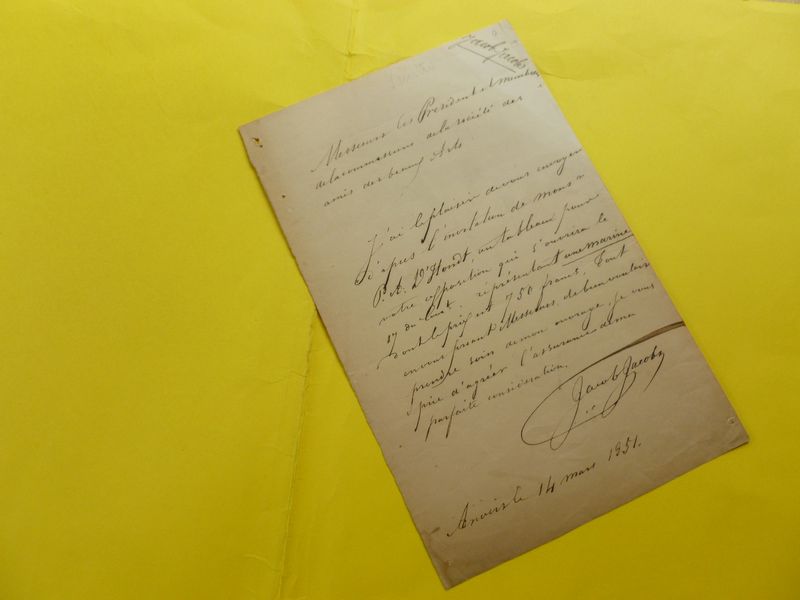 Jacob Jacobs
Messieurs les President et membres
de la commissions de la société des
amis des beaux Arts
J'ai le plaisir de vous envoyer
d'apres l'invitation de Mons r
P. A. D'Hondt, un tableau pour
votre exposition qui s'ouvrira le
17 du ct. représentant une marine
dont le prix est 750 francs. Tout
en vous priant Messieurs, de bien vouloir
prendre soin de mon ouvrage, je vous
prie d'agréer l'assurance de ma
parfaite considération.
Jacob Jacobs
Anvers le 14 mars 1851.